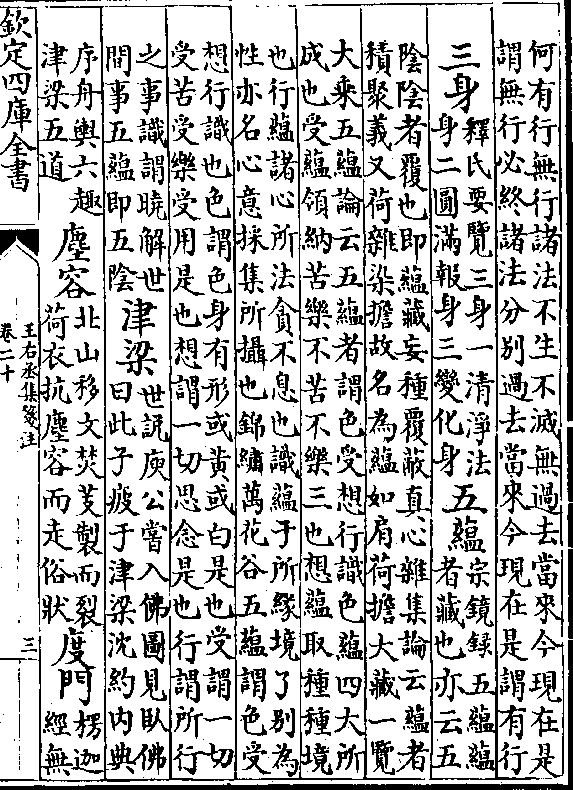 何有行無行諸法不生不滅無過去當來今現在是
謂無行必終諸法分别過去當來今現在是謂有行
三身
釋氏要覽三身一清淨法
身二圓滿報身三變化身
五蘊
宗鏡録五蘊蘊
者藏也亦云五
陰陰者覆也即蘊藏妄種覆蔽真心雜集論云蘊者
積聚義又荷雜染擔故名為蘊如肩荷擔大藏一覽
大乘五蘊論云五蘊者謂色受想行識色蘊四大所
成也受蘊領納苦樂不苦不樂三也想蘊取種種境
也行蘊諸心所法貪不息也識蘊于所緣境了别為
性亦名心意採集所攝也錦繡萬花谷五蘊謂色受
想行識也色謂色身有形或黄或白是也受謂一切
受苦受樂受用是也想謂一切思念是也行謂所行
之事識謂曉解世
間事五蘊即五陰
津梁
世説庾公嘗入佛圖見臥佛
曰此子疲于津梁沈約内典
序舟輿六趣
津梁五道
塵容
北山移文焚芰製而裂
荷衣抗塵容而走俗狀
度門
楞迦
經無
欽定四庫全書
王右丞集箋注
卷二十
三